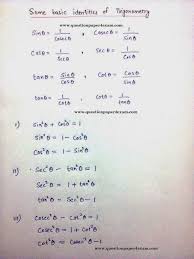 Some basic identities of Trigonometry
www.questionpaperexam.com
Sinθ = 1/Cosecθ , Cosecθ = 1/Sinθ
Cosθ = 1/Secθ , Secθ = 1/Cosθ
tanθ = Sinθ/Cosθ , Cotθ = Cosθ/Sinθ
tanθ = 1/Cotθ , Cotθ = 1/tanθ
www.questionpaperexam.com
i) Sin²θ + Cos²θ = 1
Sin²θ = 1 - Cos²θ
Cos²θ = 1 - Sin²θ
ii) Sec²θ - tan²θ = 1
Sec²θ = 1 + tan²θ
tan²θ = Sec²θ - 1
iii) Cosec²θ - Cot²θ = 1
Cosec²θ = 1 + Cot²θ
Cot²θ = Cosec²θ - 1
www.questionpaperexam.com